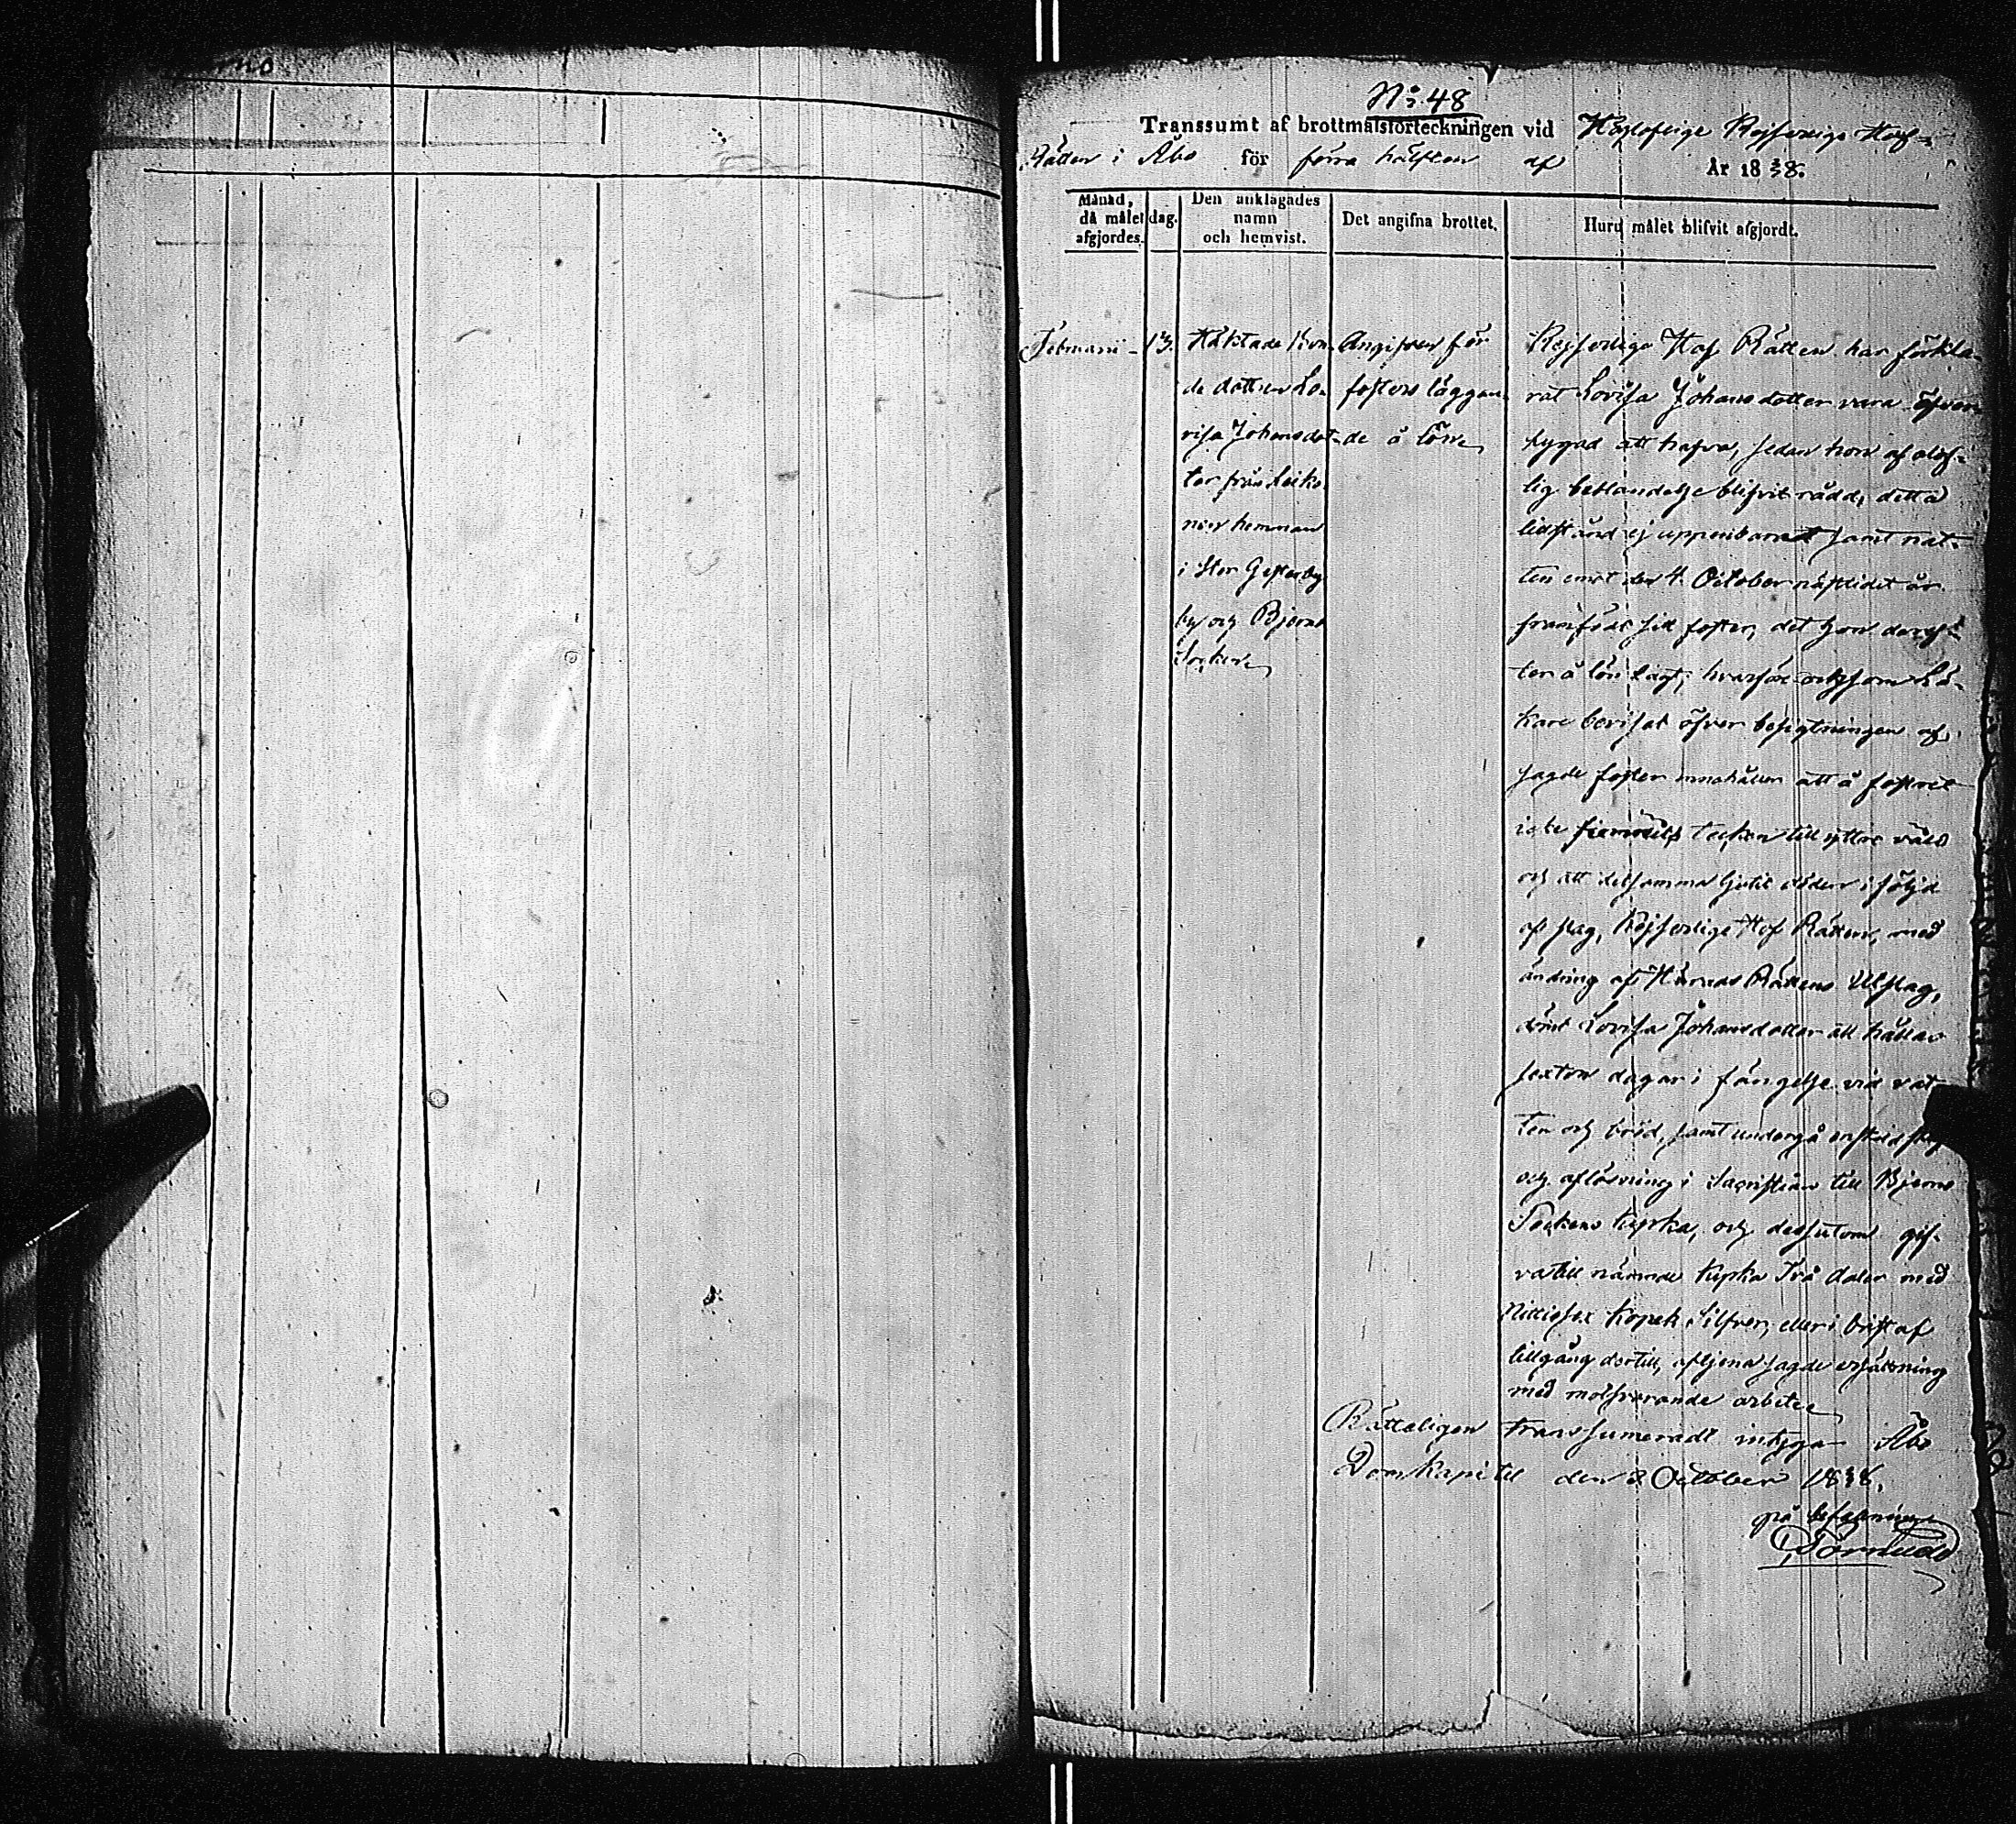 No 48
Transsumt af brottmålsförteckningen vid Högloflige Kejserliga Hof-
Rätten i Åbo för förra hälften af År 1838.
Månad, då målet afgjordes.
dag.
Den anklagades namn och hemvist.
Det angifna brottet.
Huru målet blifvit afgjordt.
Februarii – 13.
Häktade Bon-
de dottren Lo-
visa Johansdot-
ter från Leiko-
nen hemman
i Stor Gesterby
by och Bjerno
Socken
Angifven för
fosters läggan-
de å lönn
Kejserliga Hof Rätten har förkla-
rat Lovisa Johansdotter vara öfver-
tygad att hafva, sedan hon af olof-
lig beblandelse blifvit rådd, detta
tillstånd ej uppenbarat samt nat-
ten emot den 4. October nästlidet år
framfödt sitt foster, det hon deref-
ter å lön lagt; hvarföre och som Lä-
kare beviset öfver besigtningen af
sagde foster innehåller att å fostret
icke funnits tecken till yttre våld
och att detsamma ljutit döden i följd
af slag, Kejserliga Hof Rätten, med
ändring af Härads Rättens Utslag,
dömt Lovisa Johansdotter att hållas
sexton dagar i fängelse vid vat-
ten och bröd, samt undergå enskild skrift
och aflösning i Sacristian till Bjerno
Sockens kyrka, och dessutom gif-
va till nämnde kyrka Två daler med
Nittiosex kopek Silfver, eller i brist af
tillgång dertill, aftjena sagde ersättning
med motsvarande arbete
Rätteligen transsumeradt intyga Åbo
Domkapitel den 3 October 1838.
på befallning
Törnudd